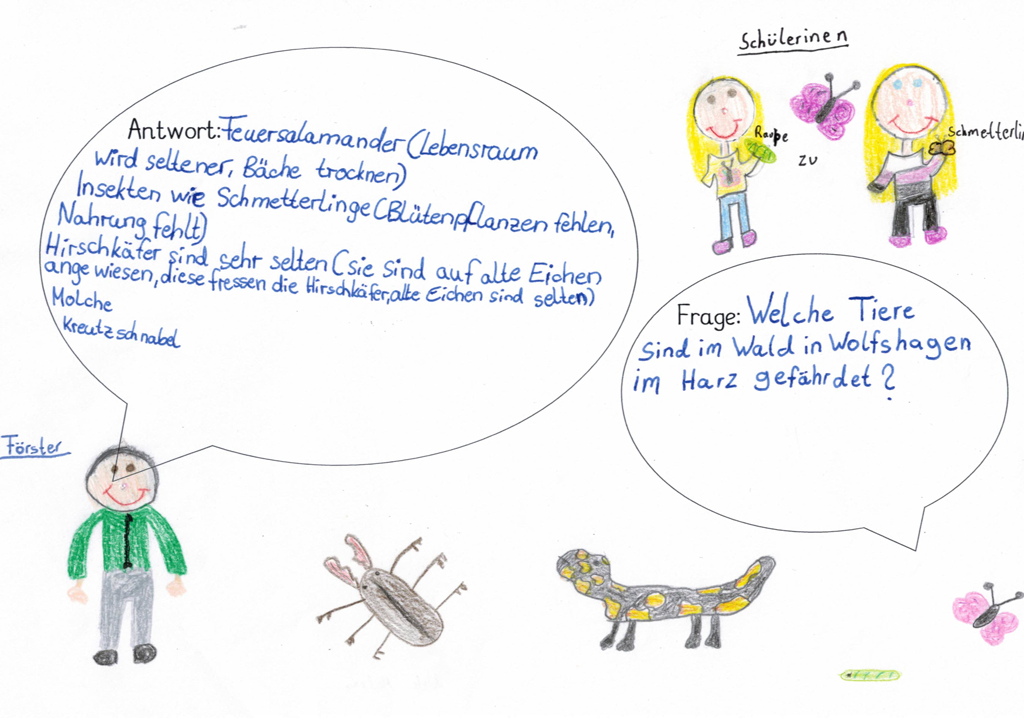 Schülerinen
Raupe
zu
Schmetterlin
Antwort: Feuersalamander (Lebensraum
wird seltener, Bäche trocknen)
Insekten wie Schmetterlinge (Blütenpflanzen fehlen,
Nahrung fehlt)
Hirschkäfer sind sehr selten (sie sind auf alte Eichen
angewiesen, diese fressen die Hirschkäfer, alte Eichen sind selten)
Molche
Kreutzschnabel
Frage: Welche Tiere
sind im Wald in Wolfshagen
im Harz gefährdet?
Förster